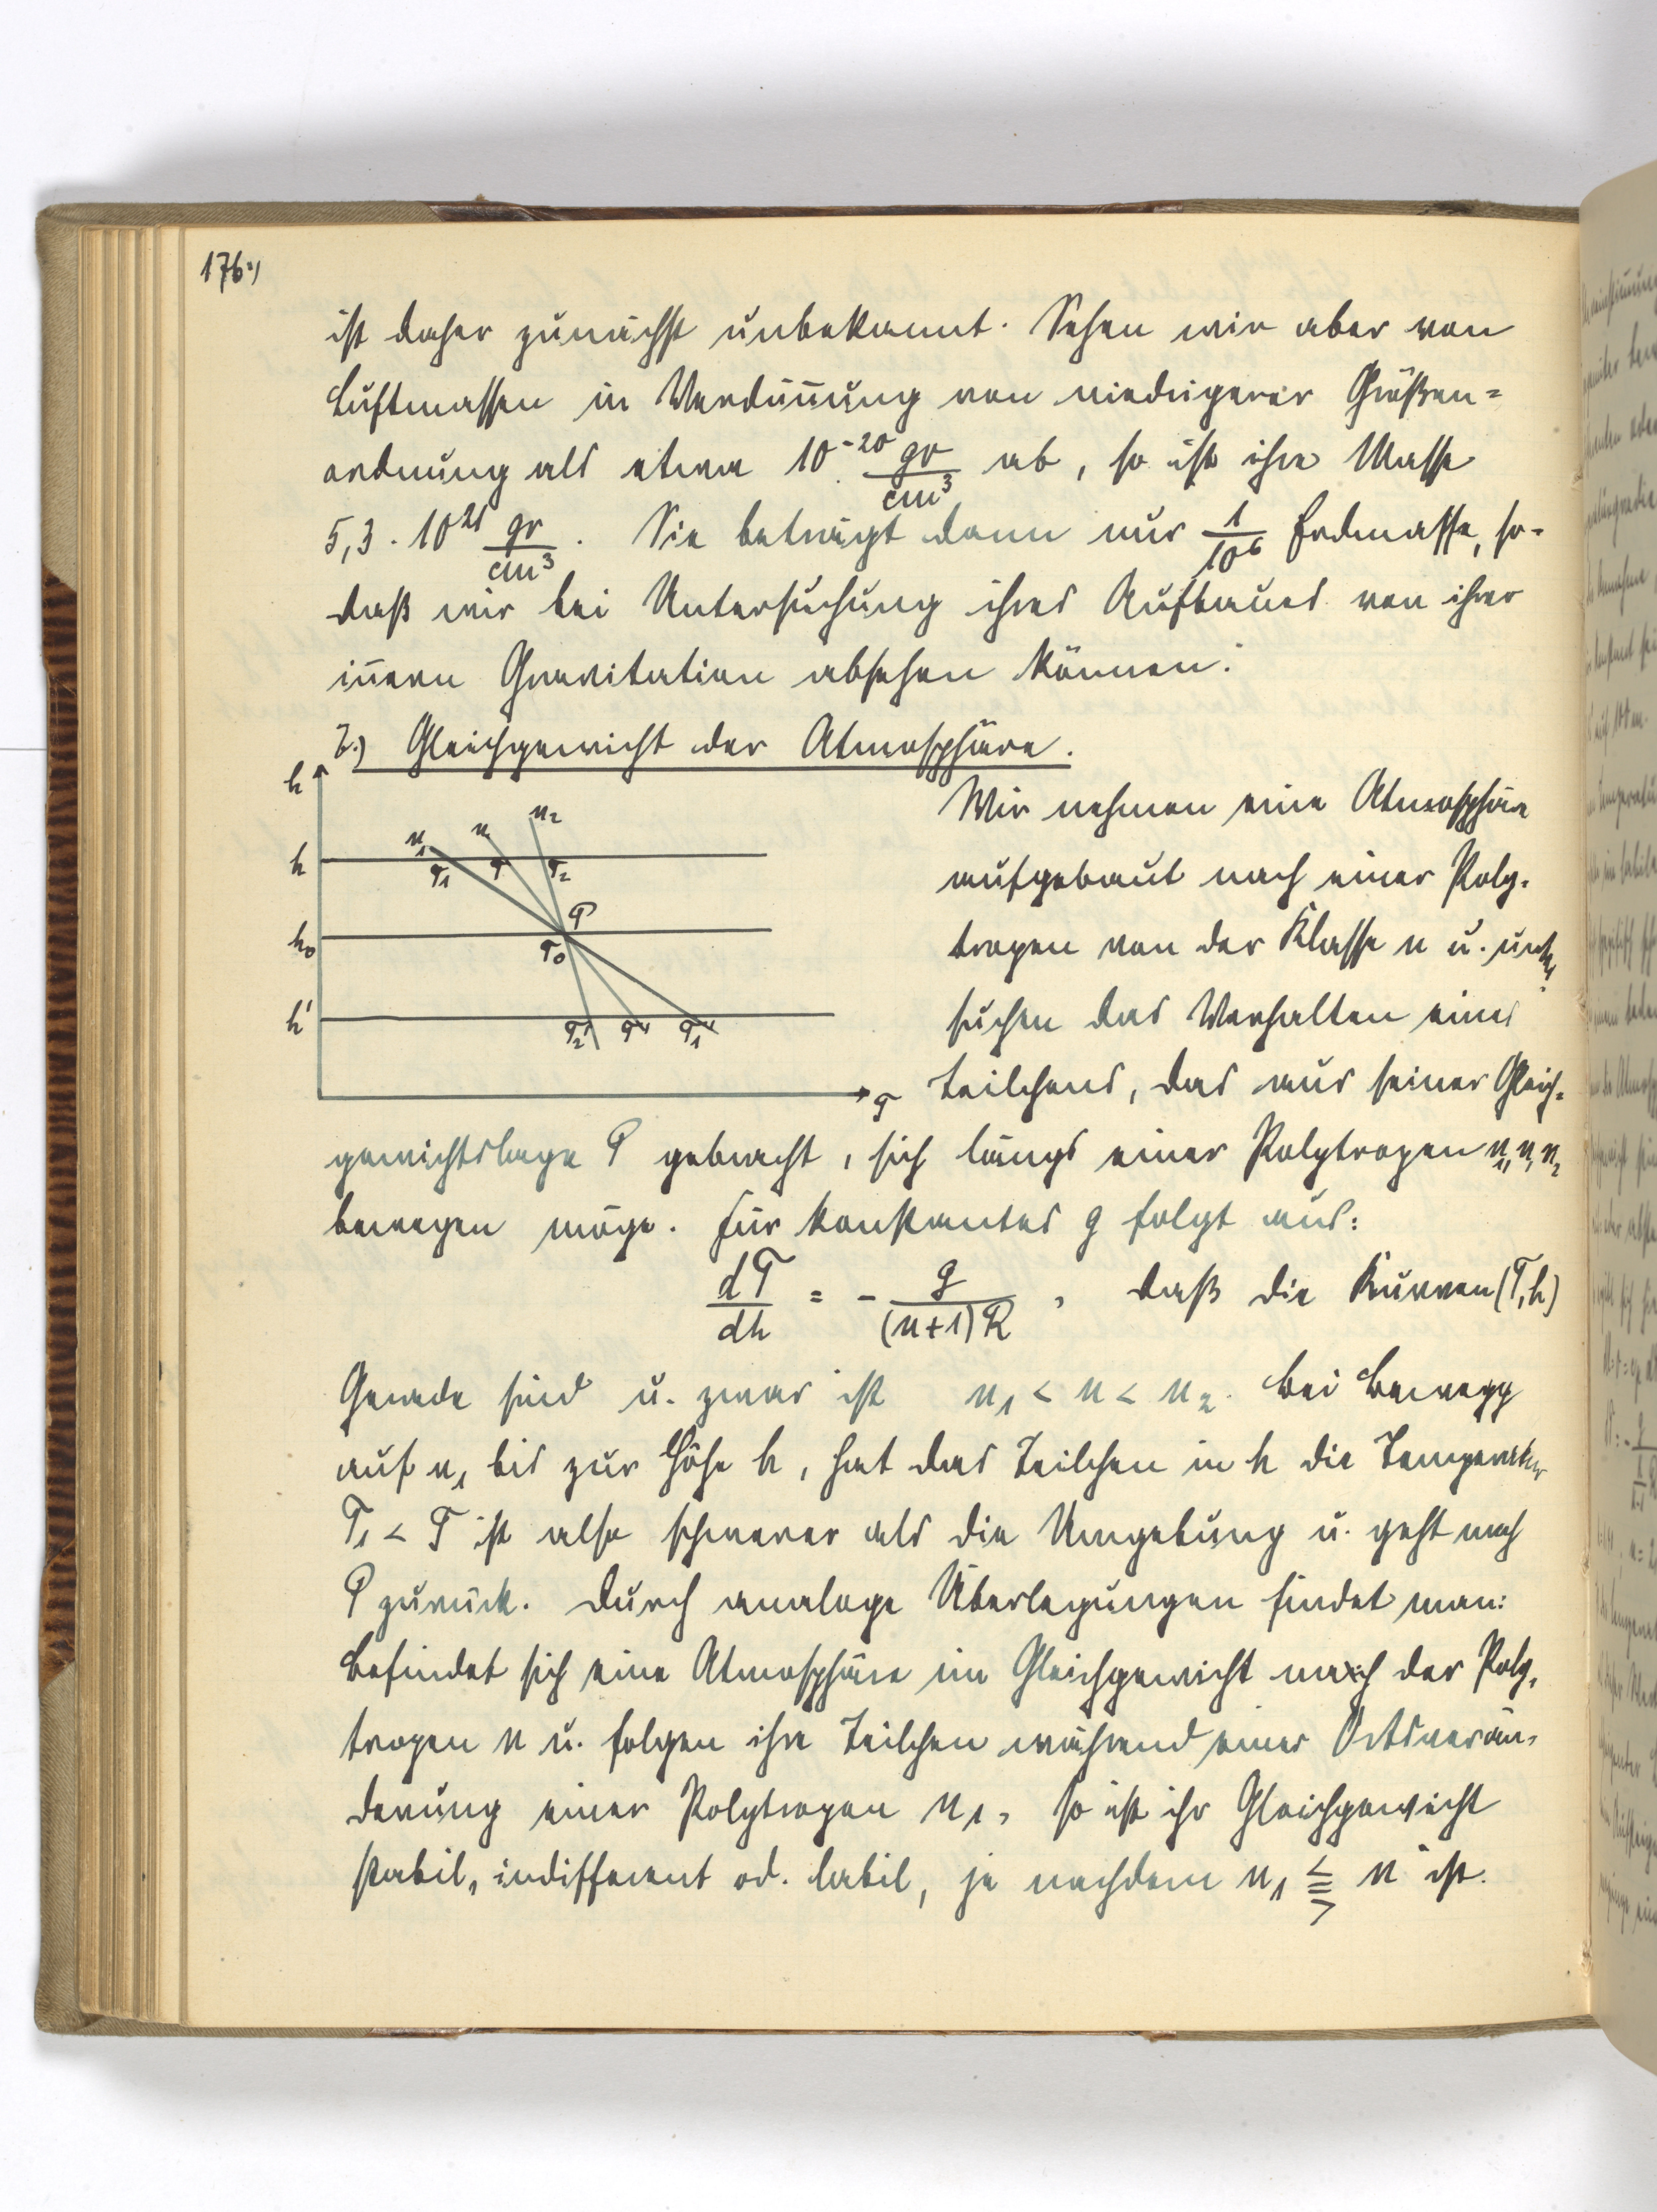 176.)
ist daher zunächst unbekannt. Sehen wir aber von
Luftmassen in Verdünnung von niedrigerer Größen=
ordnung als etwa 10^-20 gr/cm^3 ab, so ist ihre Masse
5,3 . 10^21 gr/cm^3 . Sie beträgt dann nur 1/10^6 Erdmasse, so-
daß wir bei Untersuchung ihres Aufbaues von ihrer
innern Gravitation absehen können.
7.) Gleichgewicht der Atmosphäre.
h
n1 n n2
h T1 T T2
P
h0 T0
h' T2' T' T1'
T
Wir nehmen eine Atmosphäre
aufgebaut nach einer Poly-
tropen von der Klasse n u. unter-
suchen das Verhalten eines
Teilchens, das aus seiner Gleich-
gewichtslage P gebracht, sich längs einer Polytropen n1, n, n2
bewegen möge. Für konstantes g folgt aus:
dT/dh = - g/((n+1)R) , daß die Kurven (T,h)
Gerade sind u. zwar ist n1 < n < n2. Bei Bewegg
auf n1 bis zur Höhe h, hat das Teilchen in h die Temperatur
T1 < T ist also schwerer als die Umgebung u. geht nach
P zurück. Durch analoge Überlegungen findet man:
Befindet sich eine Atmosphäre im Gleichgewicht nach der Poly-
tropen n u. folgen ihre Teilchen während einer Ortsverän-
derung einer Polytropen n1, so ist ihr Gleichgewicht
stabil, indifferent od. labil, je nachdem n1 ⪋ n ist.